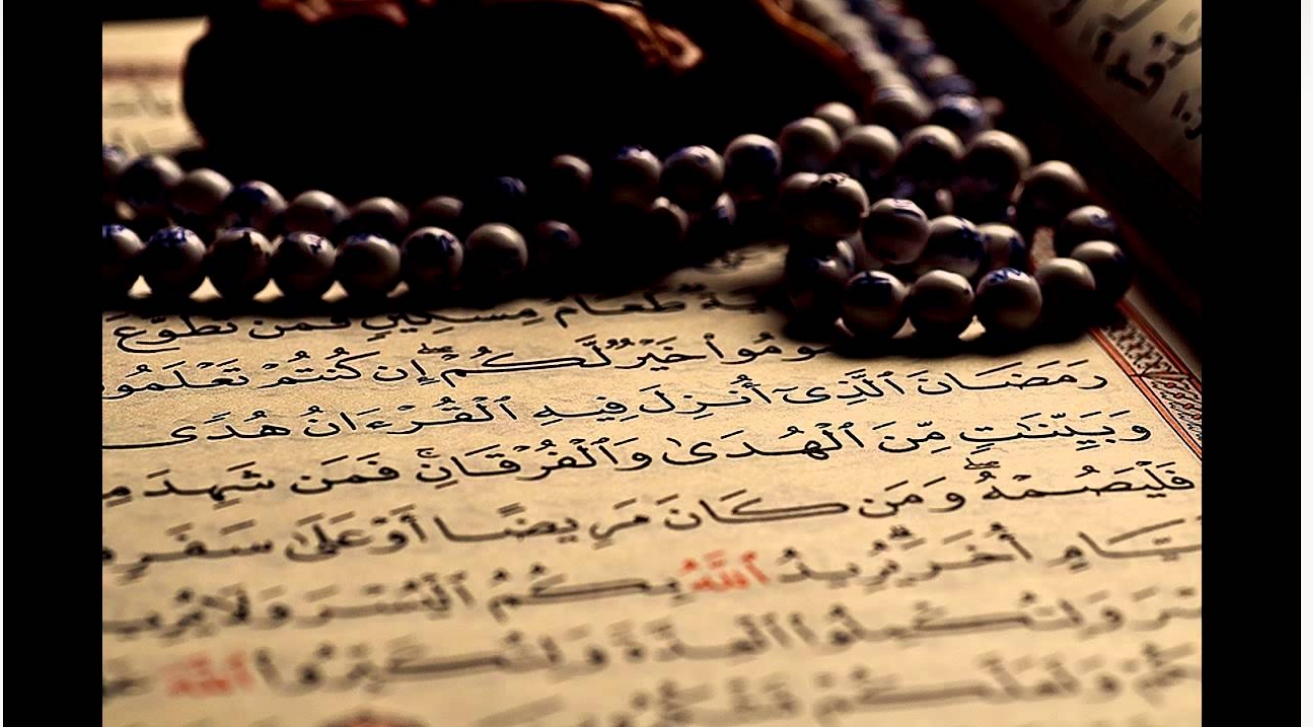 طَعَامُ مِسْكِينٍ فَمَن تَطَوَّعَ
خَيْرٌ لَّكُمْ ۖ إِن كُنتُمْ تَعْلَمُو
رَمَضَانَ ٱلَّذِىٓ أُنزِلَ فِيهِ ٱلْقُرْءَانُ هُدًى
وَبَيِّنَـٰتٍ مِّنَ ٱلْهُدَىٰ وَٱلْفُرْقَانِ ۚ فَمَن شَهِدَ
فَلْيَصُمْهُ ۖ وَمَن كَانَ مَرِيضًا أَوْ عَلَىٰ سَفَرٍ
أُخَرَ ۗ يُرِيدُ ٱللَّهُ بِكُمُ ٱلْيُسْرَ وَلَا يُرِيدُ
وَلِتُكْمِلُوا۟ ٱلْعِدَّةَ وَلِتُكَبِّرُوا۟ ٱللَّهَ
وَلَعَلَّكُمْ تَشْكُرُ